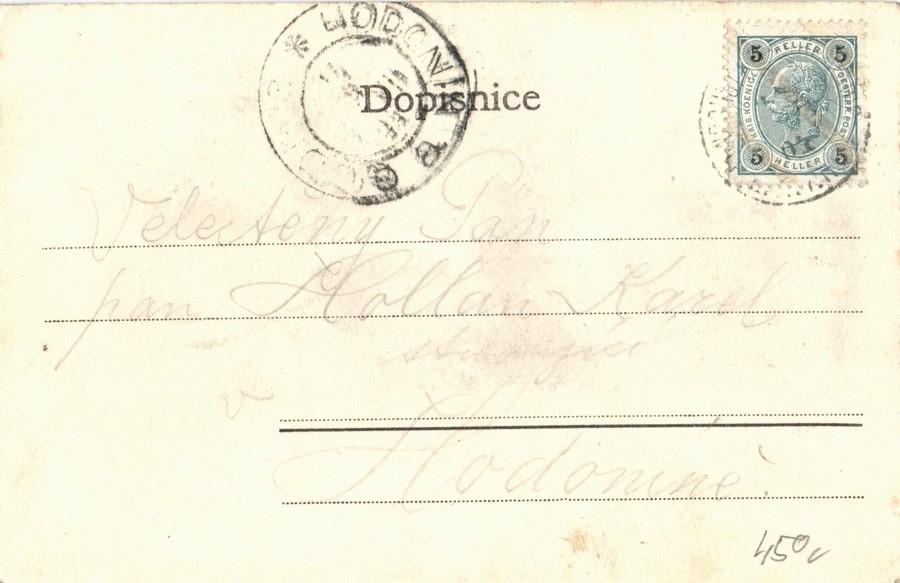 HODONIN
Dopisnice
5 HELLER 5
KAIS. KOENIGL. OESTERR. POST
5 HELLER 5
Velectěný Pan
pan Hollan Karel
v
Hodoníně
450